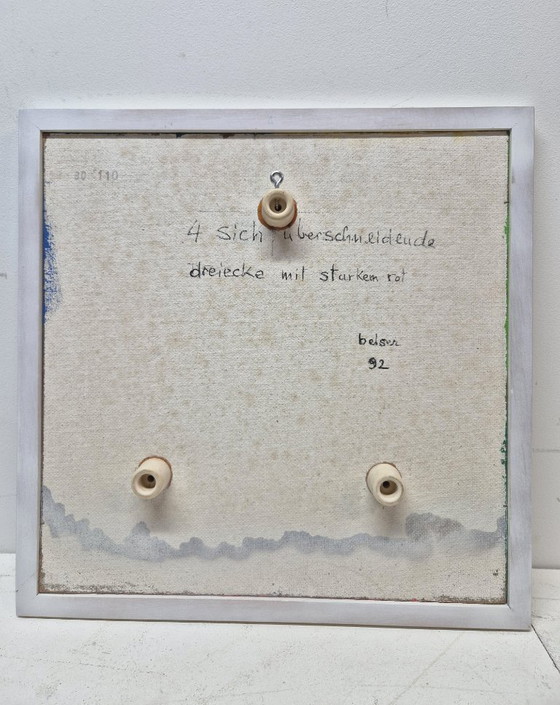 30 110
4 sich überschneidende
dreiecke mit starkem rot
beiser
92